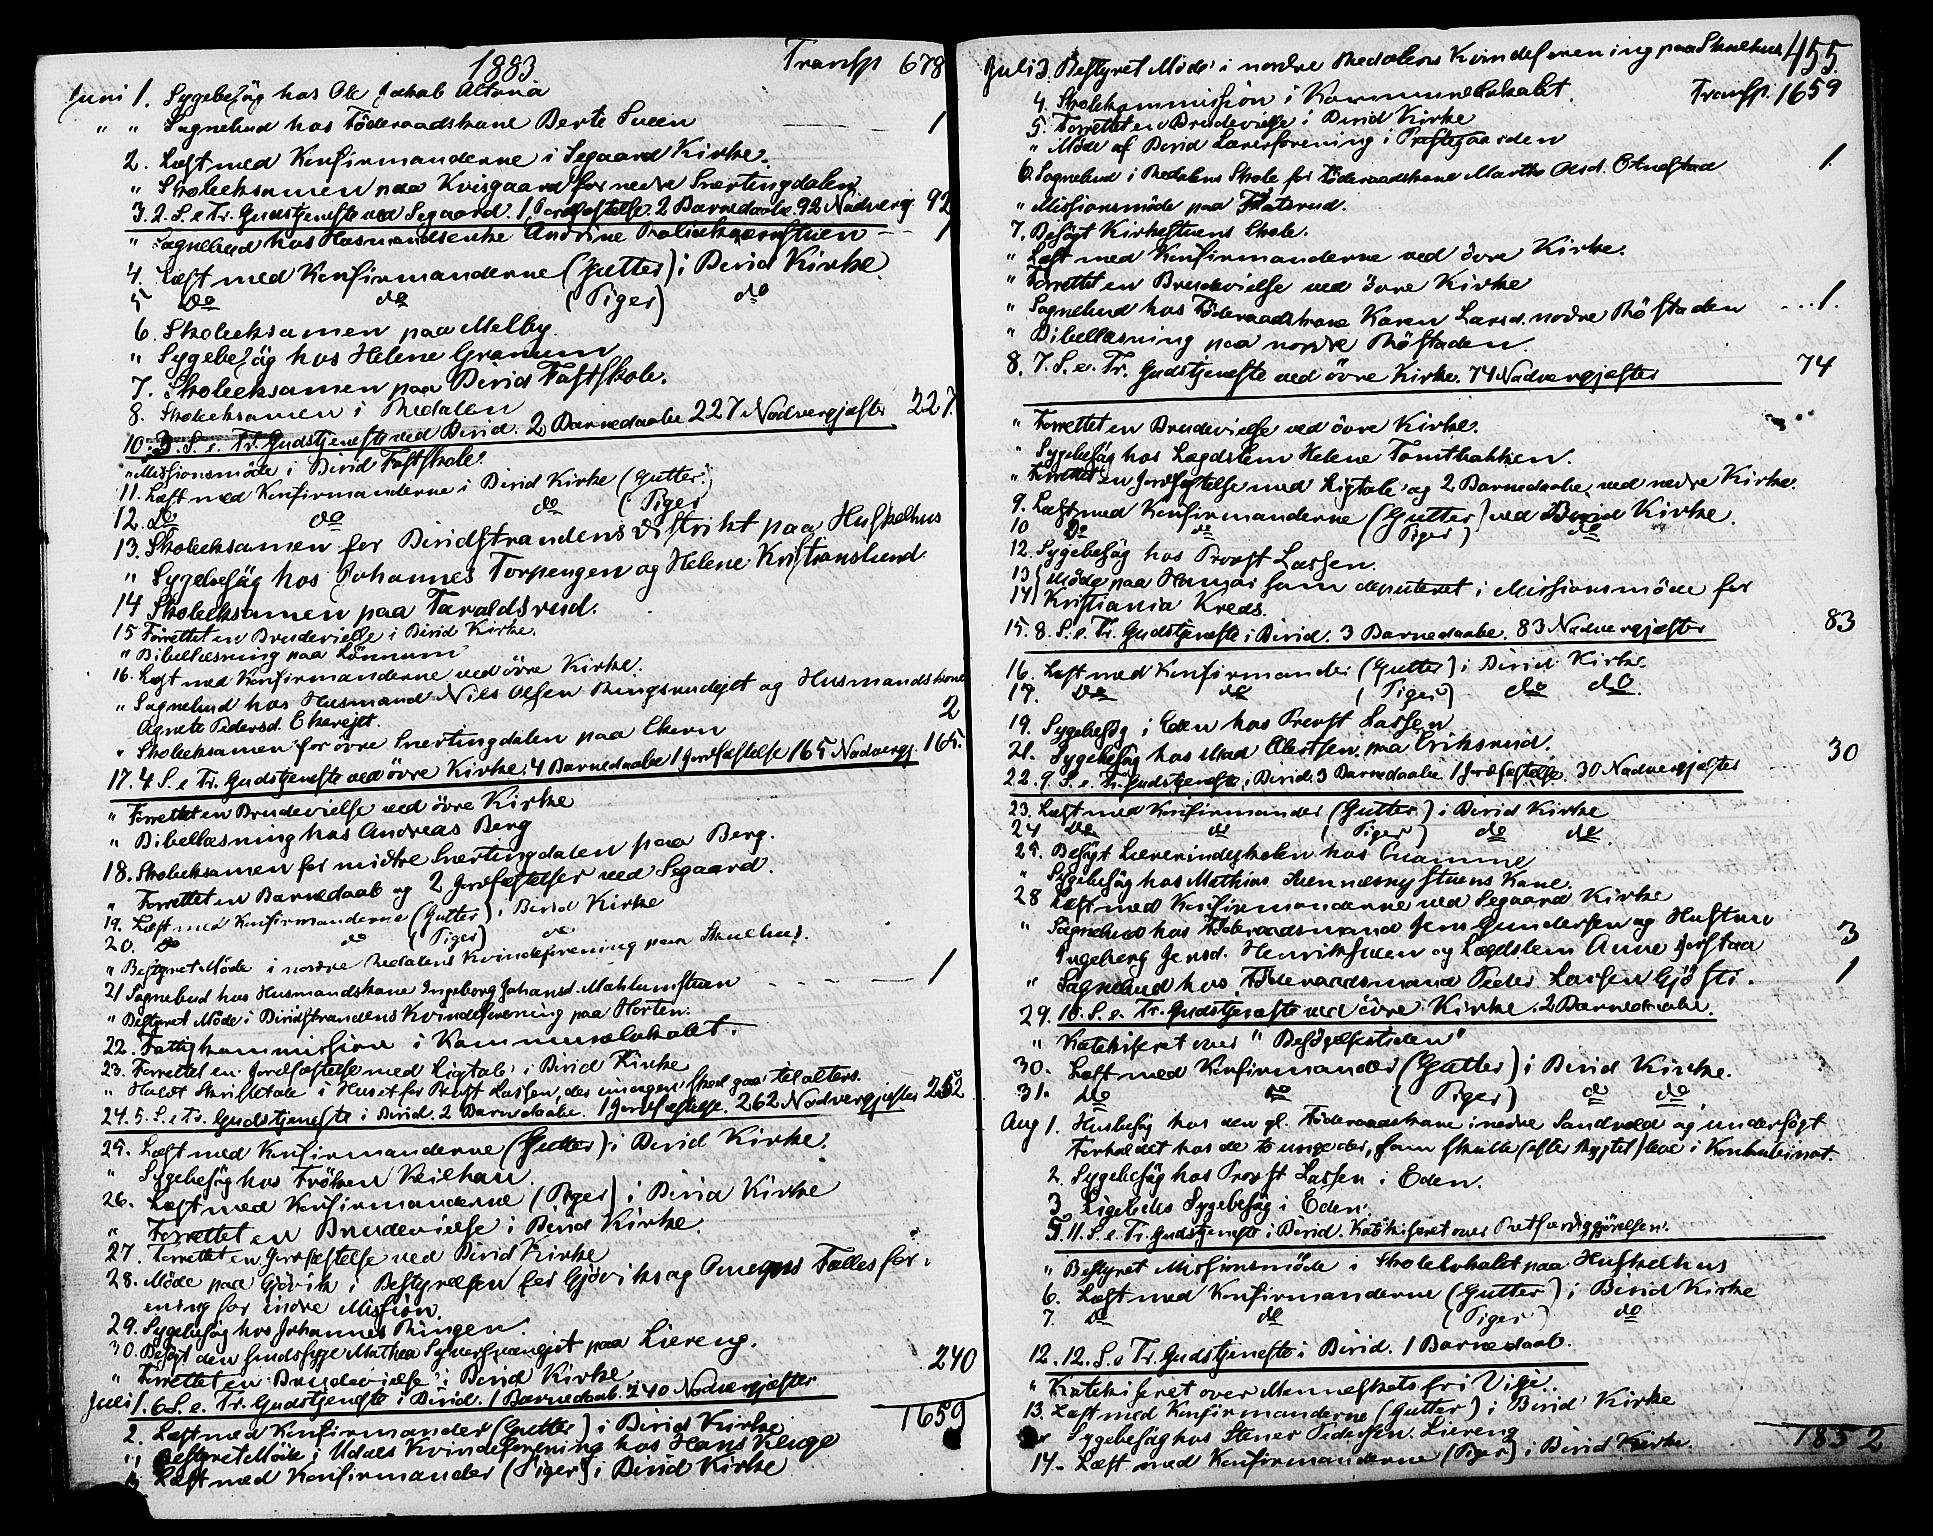 1883. Transp 678
Juni 1. Sygebesøg hos Ole Jakob Altona
" " Sognebud hos Föderaadskone Berte Sveen — 1
2. Læst med Konfirmanderne i Segaard Kirke.
" Skoleeksamen paa Kvisgaard for nedre Snertingdalen
3. 2. S. e Tr. Gudstjeneste ved Segaard. 1 Jordfæstelse. 2 Barnedaabe. 92 Nadvergj. 92
" Sognebud hos Husmandsenke Andrine — 1
4. Læst med Konfirmanderne (Gutter) i Birid Kirke.
5 do do (Piger) do
6. Skoleeksamen paa Melby.
" Sygebesøg hos Helene Granum
7. Skoleeksamen paa Birid Fastskole.
8. Skoleeksamen i Redalen
10. 3. S. e. Tr. Gudstjeneste ved Birid. 2 Barnedaabe 227 Nadvergjæster 227.
" Missionsmöde i Birid Fastskole.
11. Læst med Konfirmanderne i Birid Kirke (Gutter.)
12. do do do (Piger
13. Skoleeksamen for Biridstrandens distrikt paa Huskelhus
" Sygebesøg hos Johannes Torpengen og Helene Kristianslund
14 Skoleeksamen paa Taraldsrud.
15 Forrettet en Brudevielse i Birid Kirke.
" Bibellæsning paa Lönnum
16. Læst med Konfirmanderne ved övre Kirke.
" Sognebud hos Husmand Nils Olsen Ringsrudejet og Husmandskone
Agnete Pedersd. Ekerejet. 2
" Skoleeksamen for övre Snertingdalen paa Ekern
17. 4 S. e Tr. Gudstjeneste ved övre Kirke. 4 Barnedaabe 1 Jordfæstelse 165 Nadvergj. 165.
" Forrettet en Brudevielse ved övre Kirke
" Bibellæsning hos Andreas Berg
18. Skoleeksamen for midtre Snertingdalen paa Berg.
" Forrettet en Barnedaab og 2 Jordfæstelser ved Segaard.
19. Læst med Konfirmanderne (Gutter) i Birid Kirke
20. do do (Piger) do
" Bestyret Möde i nordre Redalens Kvindeforening paa Skulhus.
21 Sognebud hos Husmandskone Ingeborg Johansd. Mahlumstuen — 1
" Bestyret Möde i Biridstrandens Kvindeforening paa Horten.
22. Fattigkommission i Kommunelokalet.
23. Forrettet en Jordfæstelse med Ligtale i Birid Kirke
" Holdt Skriftetale i Huset for Provst Lassen, der imorgen skal gaa til alters.
24. 5. S. e Tr. Gudstjeneste i Birid. 2 Barnedaabe. 1 Jordfæstelse. 262 Nadvergjæster 262
25. Læst med Konfirmanderne (Gutter) i Birid Kirke.
" Sygebesøg hos Fröken Keilhau
26. Læst med Konfirmanderne (Piger) i Birid Kirke
" Forrettet en Brudevielse i Birid Kirke.
27. Forrettet en Jordfæstelse ved Birid Kirke
28. Möde paa Gjövik i Bestyrelsen for Gjövik og Omegns Fællesfor-
ening for indre Mission.
29. Sygebesøg hos Johannes Ringen.
30. Besögt den sindssyge Mathea paa Liereng.
" Forrettet en Brudevielse i Birid Kirke
Juli 1. 6 S. e. Tr. Gudstjeneste i Birid. 1 Barnedaab. 240 Nadvergjæster 240
1659
2. Læst med Konfirmander (Gutter) i Birid Kirke
" Bestyret Möde i Udals Kvindeforening hos Hans Kluge
3 Læst med Konfirmander (Piger) i Birid Kirke
455.
Juli 3. Bestyret Möde i nordre Redalens Kvindeforening paa Skulhus
Transp. 1659
4. Skolekommission i Kommunelokalet.
5. Forrettet en Brudevielse i Birid Kirke
" Möde af Birid Lærerforening i Præstegaarden
6. Sognebud i Redalens Skole for Föderaadskone Marthe Olsd. Onstad 1
" Missionsmöde paa Flatsrud.
7. Besögt Kirkestuens Skole.
" Læst med Konfirmanderne ved övre Kirke.
" Forrettet en Brudevielse ved övre Kirke
" Sognebud hos Föderaadskone Karen Larsd. nordre Röstaden 1.
" Bibellæsning paa nordre Röstaden.
8. 7. S. e. Tr. Gudstjeneste ved övre Kirke. 74 Nadvergjæster 74
" Forrettet en Brudevielse ved övre Kirke.
" Sygebesøg hos Lægdslem Helene Tomtbakken.
" Forrettet en Jordfæstelse med Ligtale og 2 Barnedaabe ved nedre Kirke.
9. Læst med Konfirmanderne (Gutter) ved Birid Kirke.
10 do do (Piger) do
12. Sygebesøg hos Provst Lassen.
13 Möde paa Hamar som deputeret i Missionsmöde for
14 Kristiania Kreds.
15. 8. S. e. Tr. Gudstjeneste i Birid. 3 Barnedaabe. 83 Nadvergjæster 83
16. Læst med Konfirmander (Gutter) i Birid Kirke
17. do do (Piger) do do.
19. Sygebesøg i Eden hos Provst Lassen
21. Sygebesøg hos Mad Olestsen paa Eriksrud.
22. 9. S. e. Tr. Gudstjeneste i Birid. 3 Barnedaabe 1 Jordfæstelse. 30 Nadvergjæster 30
23. Læst med Konfirmander (Gutter) i Birid Kirke
24 do do (Piger) do do.
25. Besögt Lærerindeskolen hos Onamme
" Sygebesøg hos Mathias Kone.
28 Læst med Konfirmanderne ved Segaard Kirke
" Sognebud hos Föderaadsmand Jens Gundersen og Hustru
Ingeborg Jensd. Henriksveen og Lægdslem Anne 3
" Sognebud hos Föderaadsmand Peder Larsen 1
29. 10. S. e. Tr. Gudstjeneste ved övre Kirke. 2 Barnedaabe.
" Katekiseret over "Besögelsestiden"
30. Læst med Konfirmander (Gutter) i Birid Kirke.
31. do do (Piger) do do
Aug 1. Husbesøg hos den gl. Föderaadskone i nedre Sandvold og undersögt
Forholdet hos de to unge der, som skulle (efter Rygtet) leve i Konkubinat.
2. Sygebesøg hos Provst Lassen i Eden.
3 Ligeledes Sygebesøg i Eden.
5 11. S. e. Tr. Gudstjeneste i Birid. Katekiseret over Retfærdiggjörelsen.
" Bestyret Missionsmöde i Skolelokalet paa Huskelhus
6. Læst med Konfirmanderne (Gutter) i Birid Kirke
7. do do (Piger) do
12. 12. S. e Tr. Gudstjeneste i Birid. 1 Barnedaab.
" Katekiseret over Menneskets fri Vilje.
13. Læst med Konfirmanderne (Gutter) i Birid Kirke
" Sygebesøg hos Stener Pedersen. Liereng
14- Læst med Konfirmanderne (Piger) i Birid Kirke. 1852